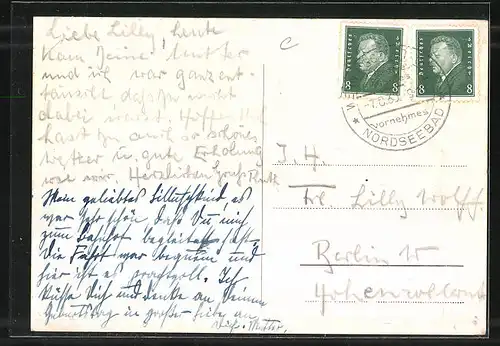 Liebe Lilly, heute
kam Deine Mutter
und ich war ganz ent-
täuscht dass Du nicht
dabei warst. Hoffentlich
hast Du auch so schönes
Wetter u. gute Erholung
wie wir. Herzlichen Gruß Ruth
Mein geliebtes es
war sehr schön dass Du mich
zum Bahnhof begleitet hast.
Die Fahrt war bequem und
hier ist es prachtvoll. Ich
küsse Dich und denke an Deinem
Geburtstag in großer Liebe an
Dich. Mutter.
C
Deutsches Reich
8 8
Deutsches Reich
8 8
-7.6.30
vornehmes
NORDSEEBAD
Frl. Lilly Wolff
Berlin W